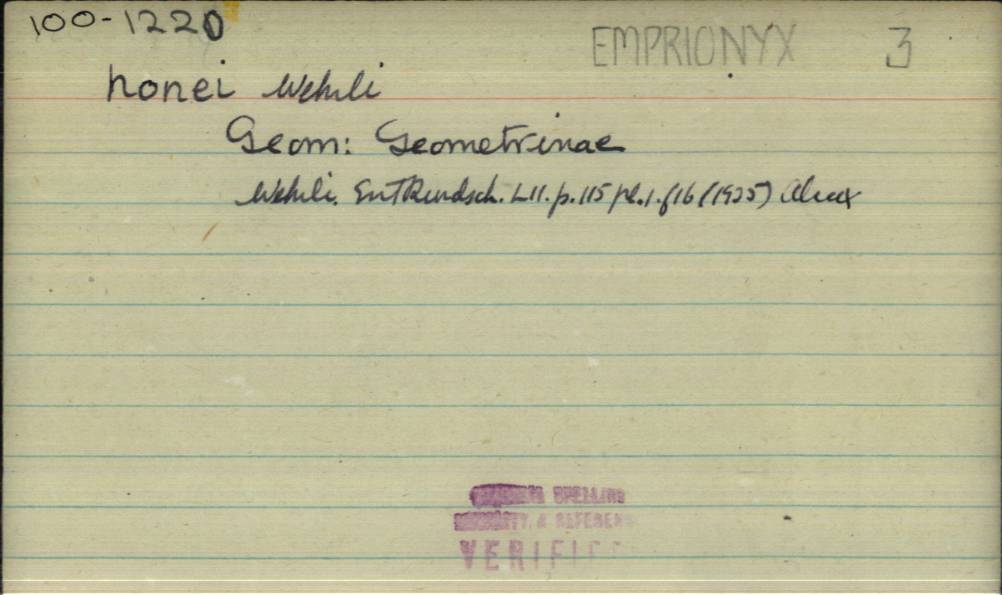 100-1220
EMPRIONYX 3
honei Wehrli
Geom: Geometrinae
Wehrli. Ent Rundsch. LII. p. 115 pl. 1. f 16 (1935)
SPELLING
& REFEREN
VERIFIE